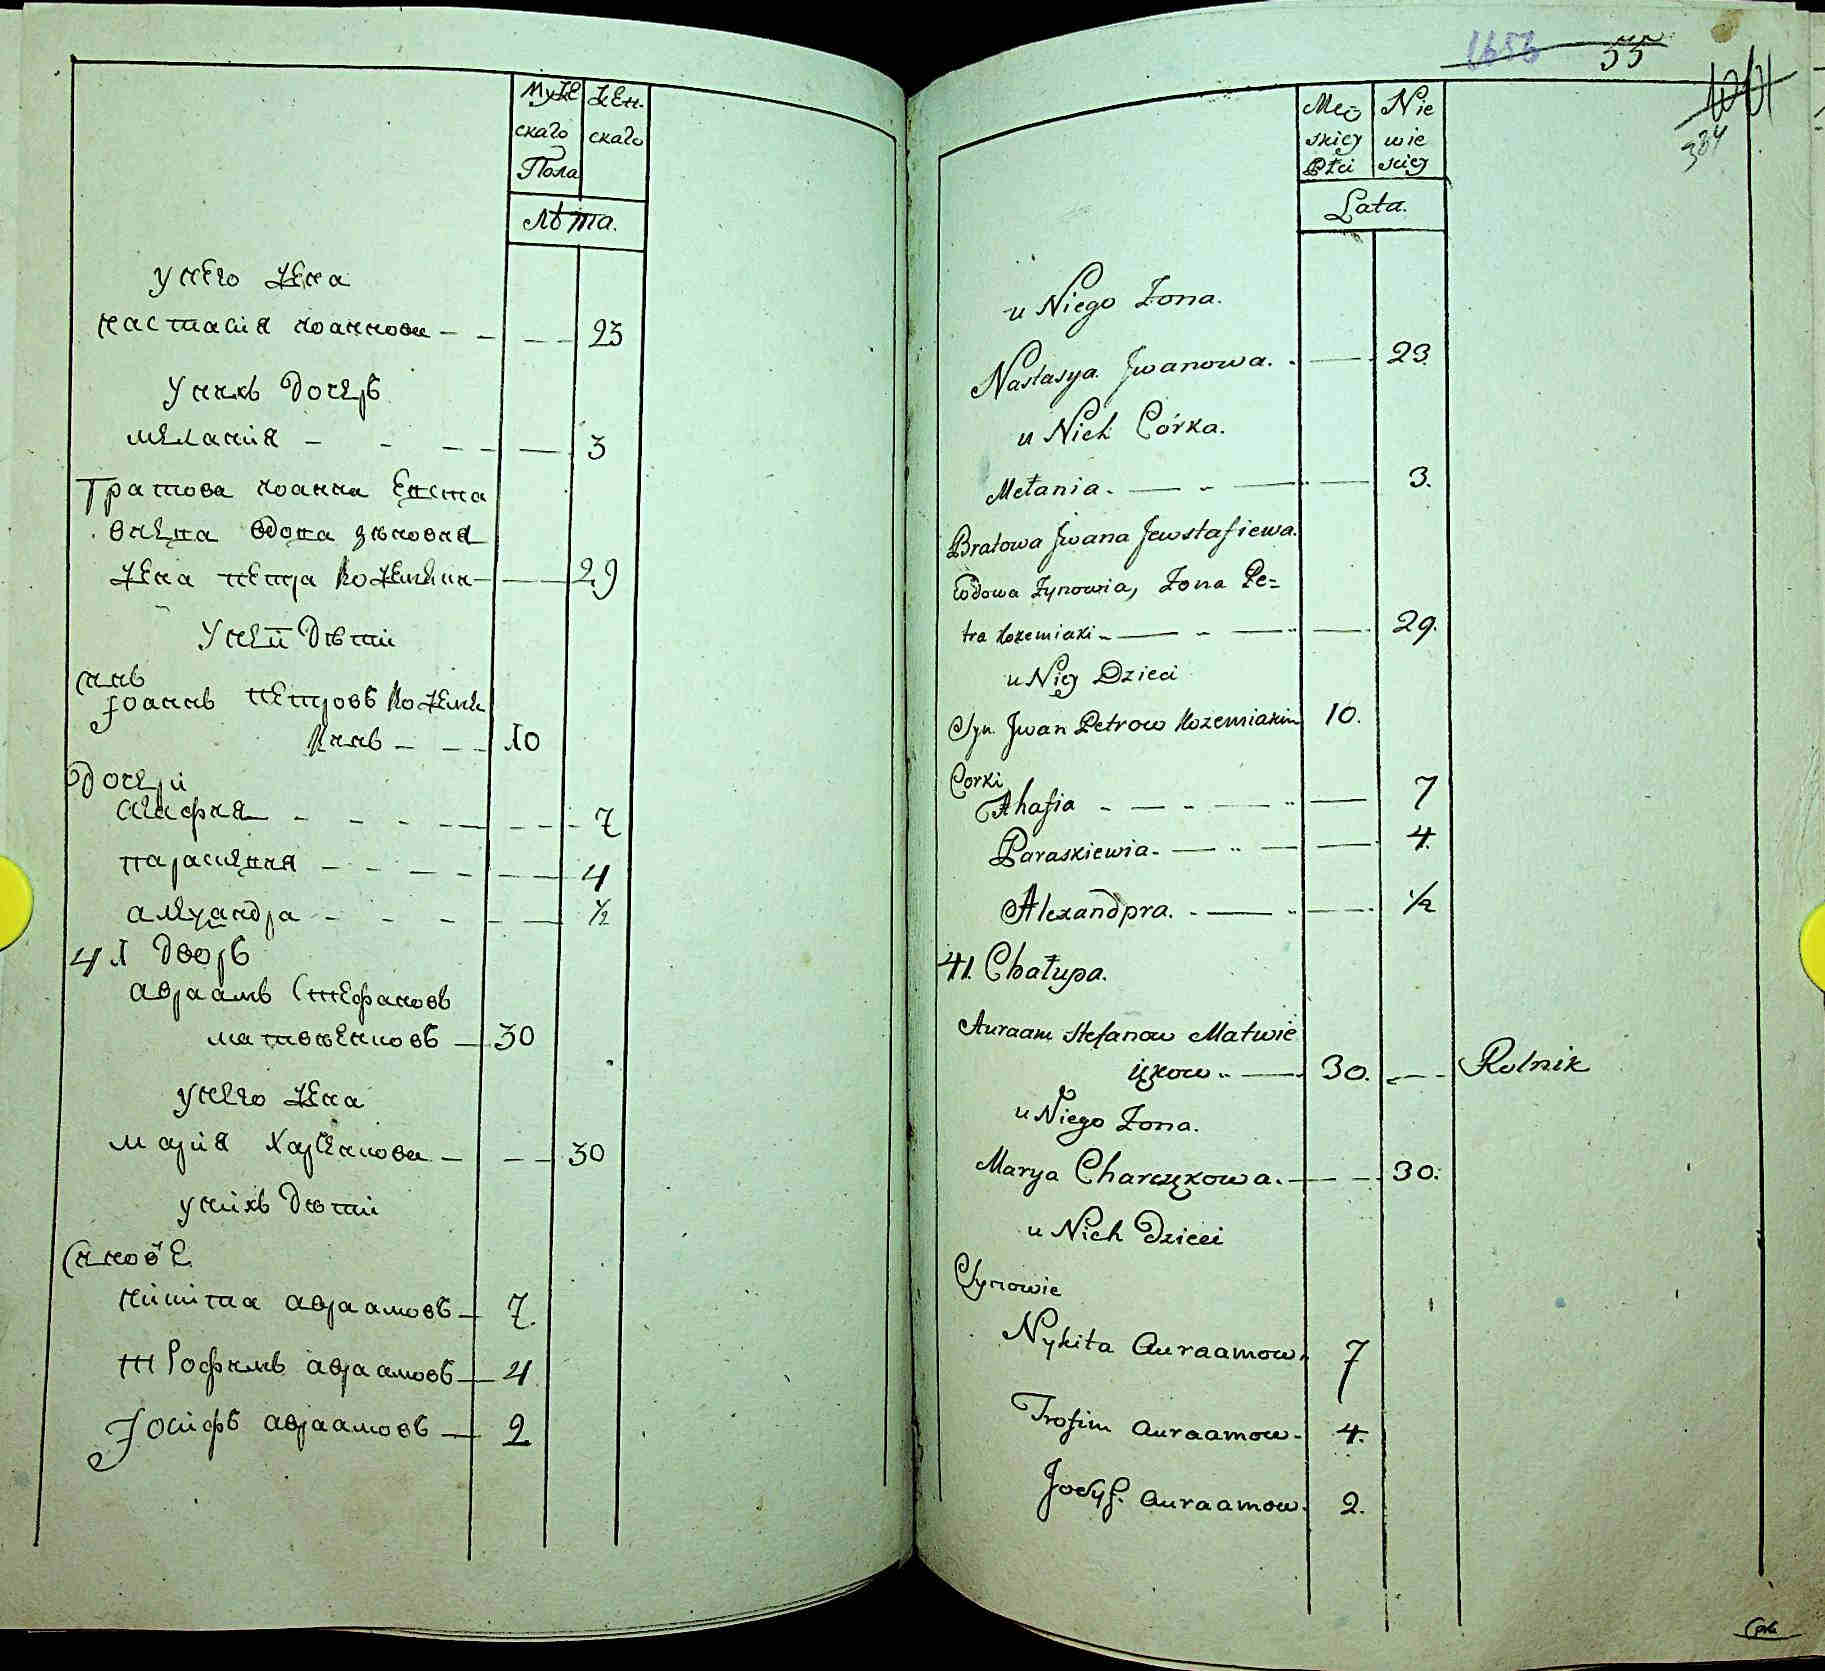 Муже
скаго
Пола
Жен.
скаго
Лѣта.
У него Жена
настасия иоаннова - - - - - 23
У нихъ дочерь
мелания - - - - - 3
братова иоанна Евста
виева вдова зиновия
Жена петра Кожемяки - - 29
У неи Дѣти
Сынъ
Jоаннъ петровъ Кожемя
кинъ - - - 10
Дочери
агафия - - - - - - 7
парасцевия - - - - - 4
александра - - - - - ½
41 дворъ
авраамъ Стефановъ
матвѣенковъ - 30
У него Жена
мария Харченкова - - - 30
У нихъ Дѣти
Сыновѣ
никита авраамовъ - 7.
трофимъ авраамовъ - 4.
Jосифъ авраамовъ - 2
1656 55
384
Męz
skiey
Płci
Nie
wie
skiey
Lata.
u Niego Żona.
Nastasya Jwanowa. - — 23.
u Nich Córka.
Mełania. — - — — 3.
Bratowa Jwana Jewstafiewa.
Wdowa Zynowia, Żona Pe=
tra Kozemiaki - — - — — 29.
u Niey Dzieci
Syn. Jwan Petrow Kozemiakin 10.
Corki
Ahafia - — - — — 7
Paraskiewia. - — - — — 4.
Alexandpra. - — - — ½
41. Chałupa.
Auraam Stefanow Matwie
iżkow - — 30. — Rolnik
u Niego Żona.
Marya Charczkowa. — — 30.
u Nich Dzieci
Synowie
Nykita Auraamow. 7
Trofim Auraamow. - 4.
Josyf. Auraamow. 2.